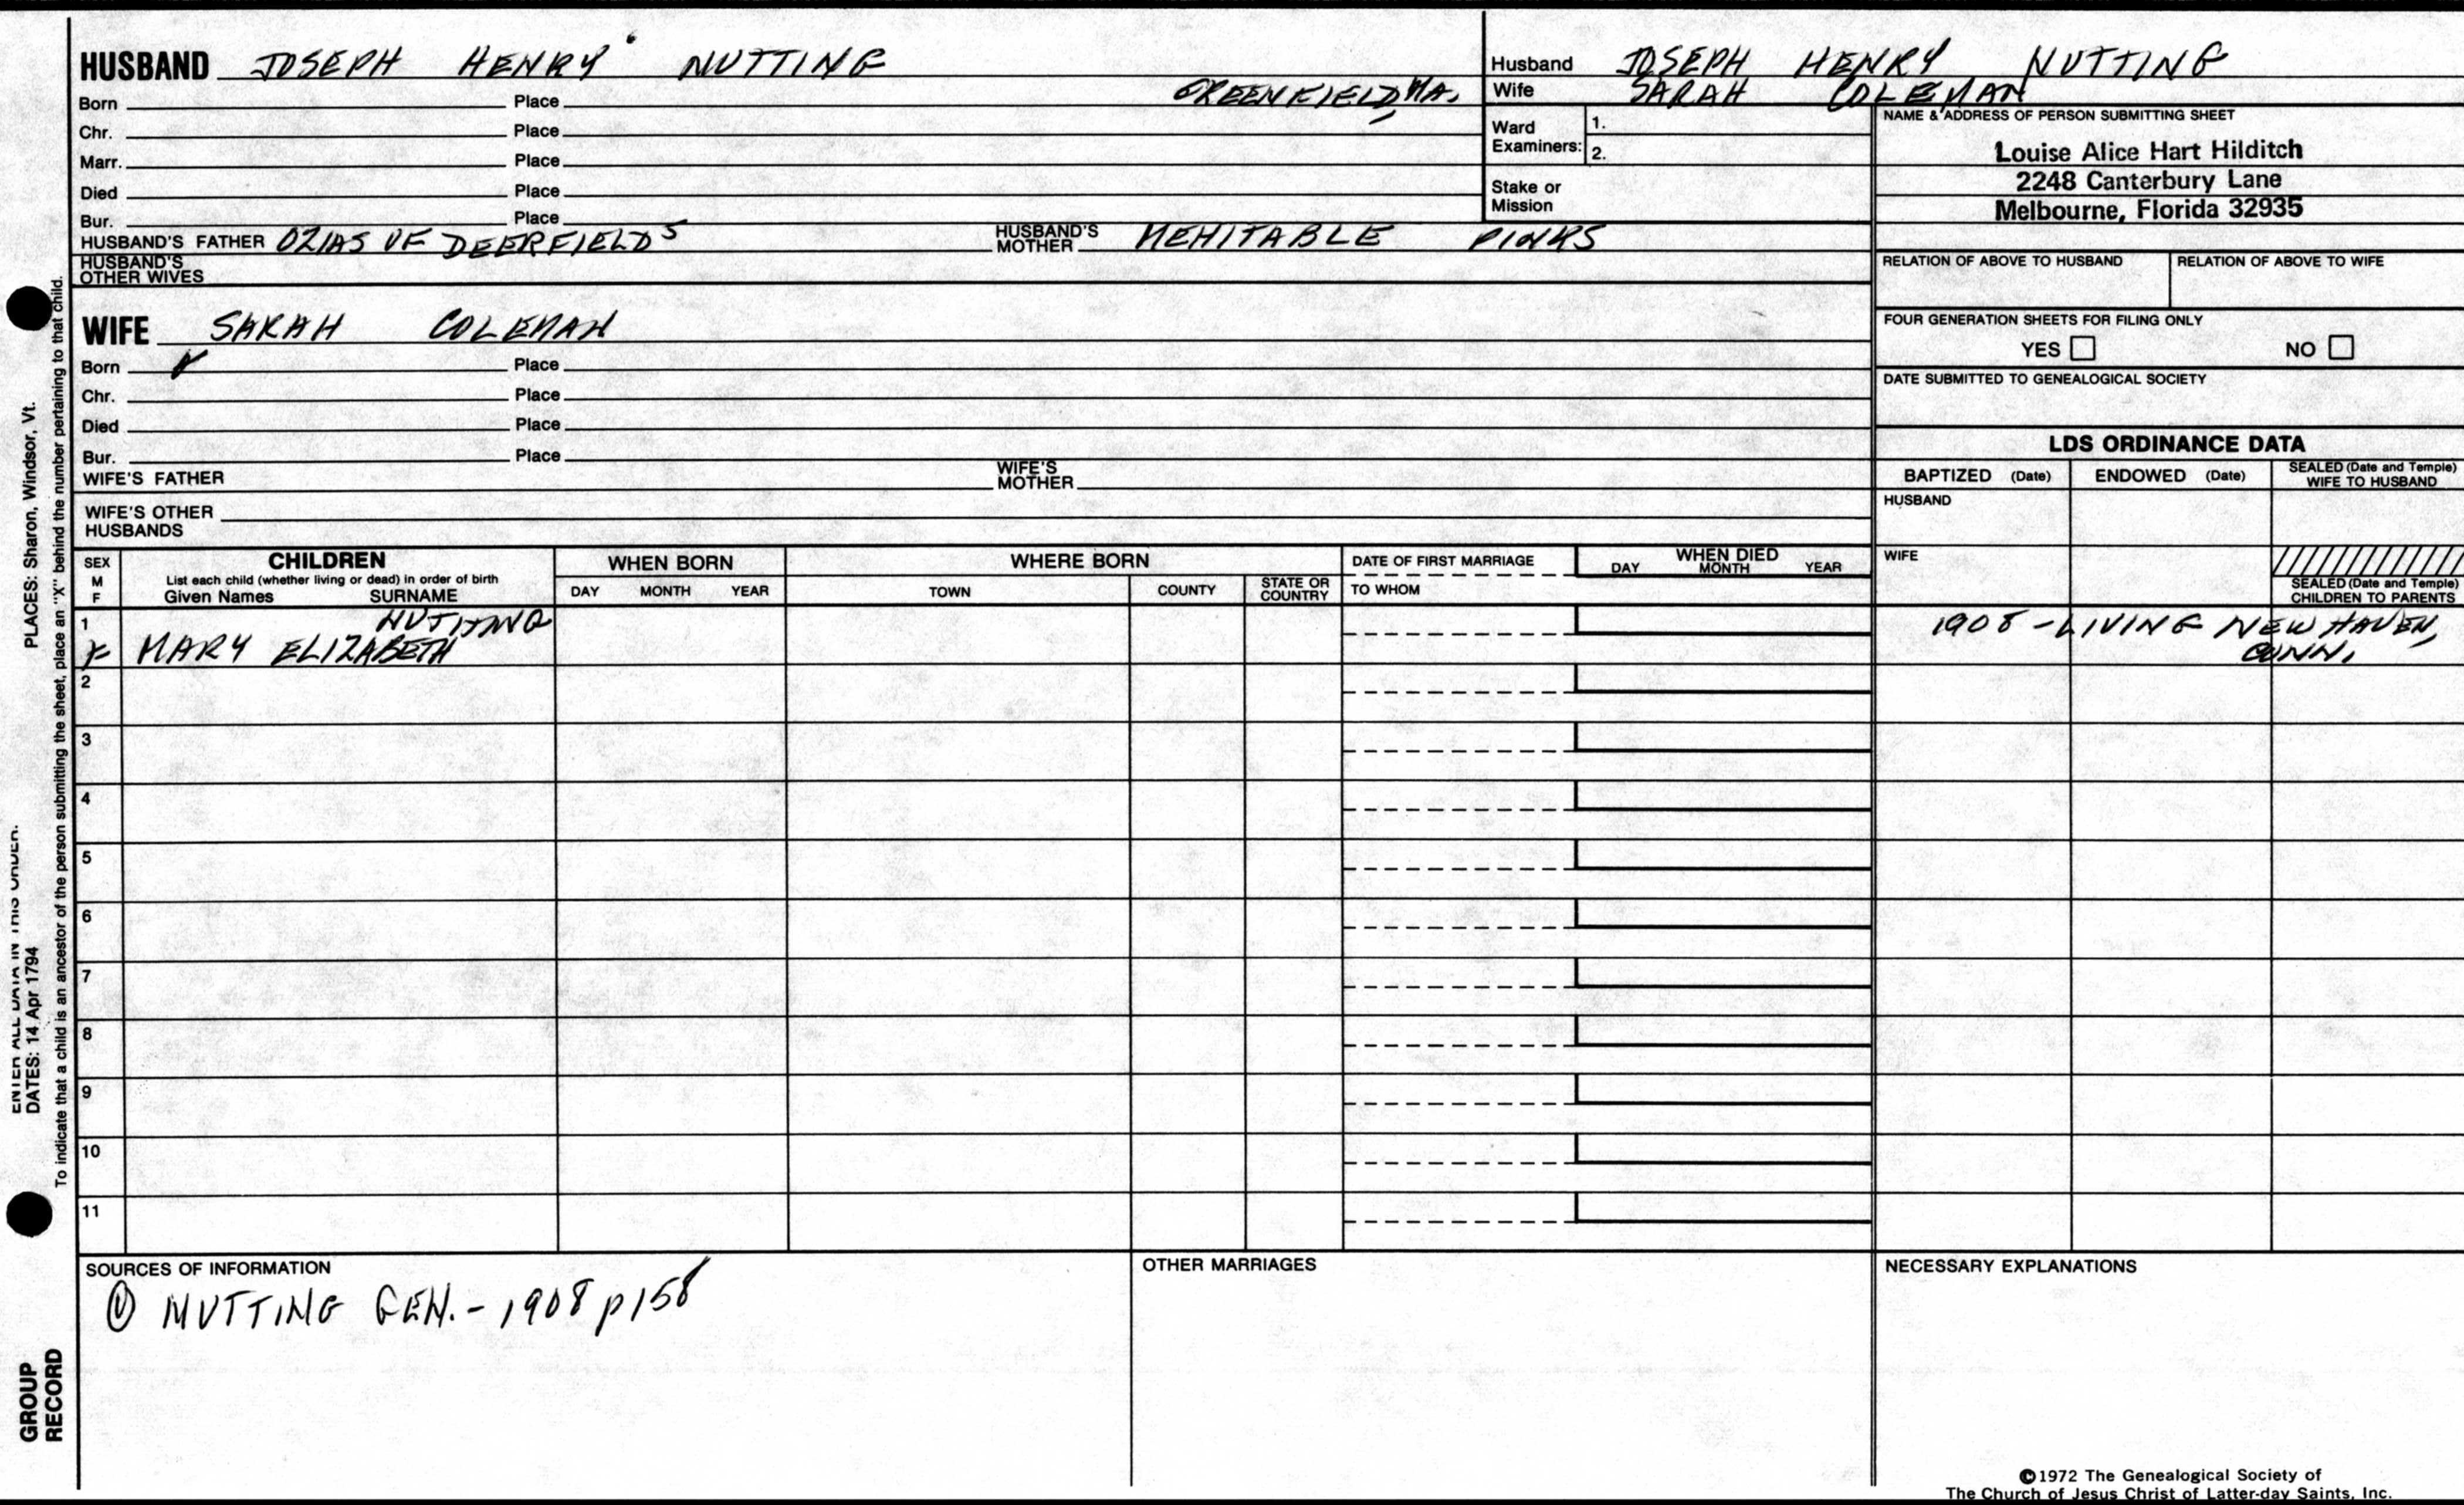 HUSBAND JOSEPH HENRY 6 NUTTING
Born Place GREENFIELD, MA.
Chr. Place
Marr. Place
Died Place
Bur. Place
HUSBAND'S FATHER OZIAS OF DEERFIELD 5 HUSBAND'S MOTHER MEHITABLE PINKS
HUSBAND'S OTHER WIVES
WIFE SARAH COLEMAN
Born Place
Chr. Place
Died Place
Bur. Place
WIFE'S FATHER WIFE'S MOTHER
WIFE'S OTHER HUSBANDS
Husband JOSEPH HENRY NUTTING
Wife SARAH COLEMAN
Ward Examiners: 1.
2.
Stake or Mission
NAME & ADDRESS OF PERSON SUBMITTING SHEET
Louise Alice Hart Hilditch
2248 Canterbury Lane
Melbourne, Florida 32935
RELATION OF ABOVE TO HUSBAND RELATION OF ABOVE TO WIFE
FOUR GENERATION SHEETS FOR FILING ONLY
YES NO
DATE SUBMITTED TO GENEALOGICAL SOCIETY
LDS ORDINANCE DATA
BAPTIZED (Date) ENDOWED (Date) SEALED (Date and Temple) WIFE TO HUSBAND
HUSBAND
WIFE
SEALED (Date and Temple) CHILDREN TO PARENTS
SEX M F CHILDREN WHEN BORN WHERE BORN DATE OF FIRST MARRIAGE WHEN DIED
List each child (whether living or dead) in order of birth
Given Names SURNAME DAY MONTH YEAR TOWN COUNTY STATE OR COUNTRY TO WHOM DAY MONTH YEAR
1 NUTTING 1908 - LIVING NEW HAVEN,
F MARY ELIZABETH CONN.
2
3
4
5
6
7
8
9
10
11
SOURCES OF INFORMATION OTHER MARRIAGES NECESSARY EXPLANATIONS
① NUTTING GEN. - 1908 p158
©1972 The Genealogical Society of
The Church of Jesus Christ of Latter-day Saints, Inc.
ENTER ALL DATA IN THIS ORDER.
DATES: 14 Apr 1794 PLACES: Sharon, Windsor, Vt.
To indicate that a child is an ancestor of the person submitting the sheet, place an "X" behind the number pertaining to that child.
GROUP
RECORD